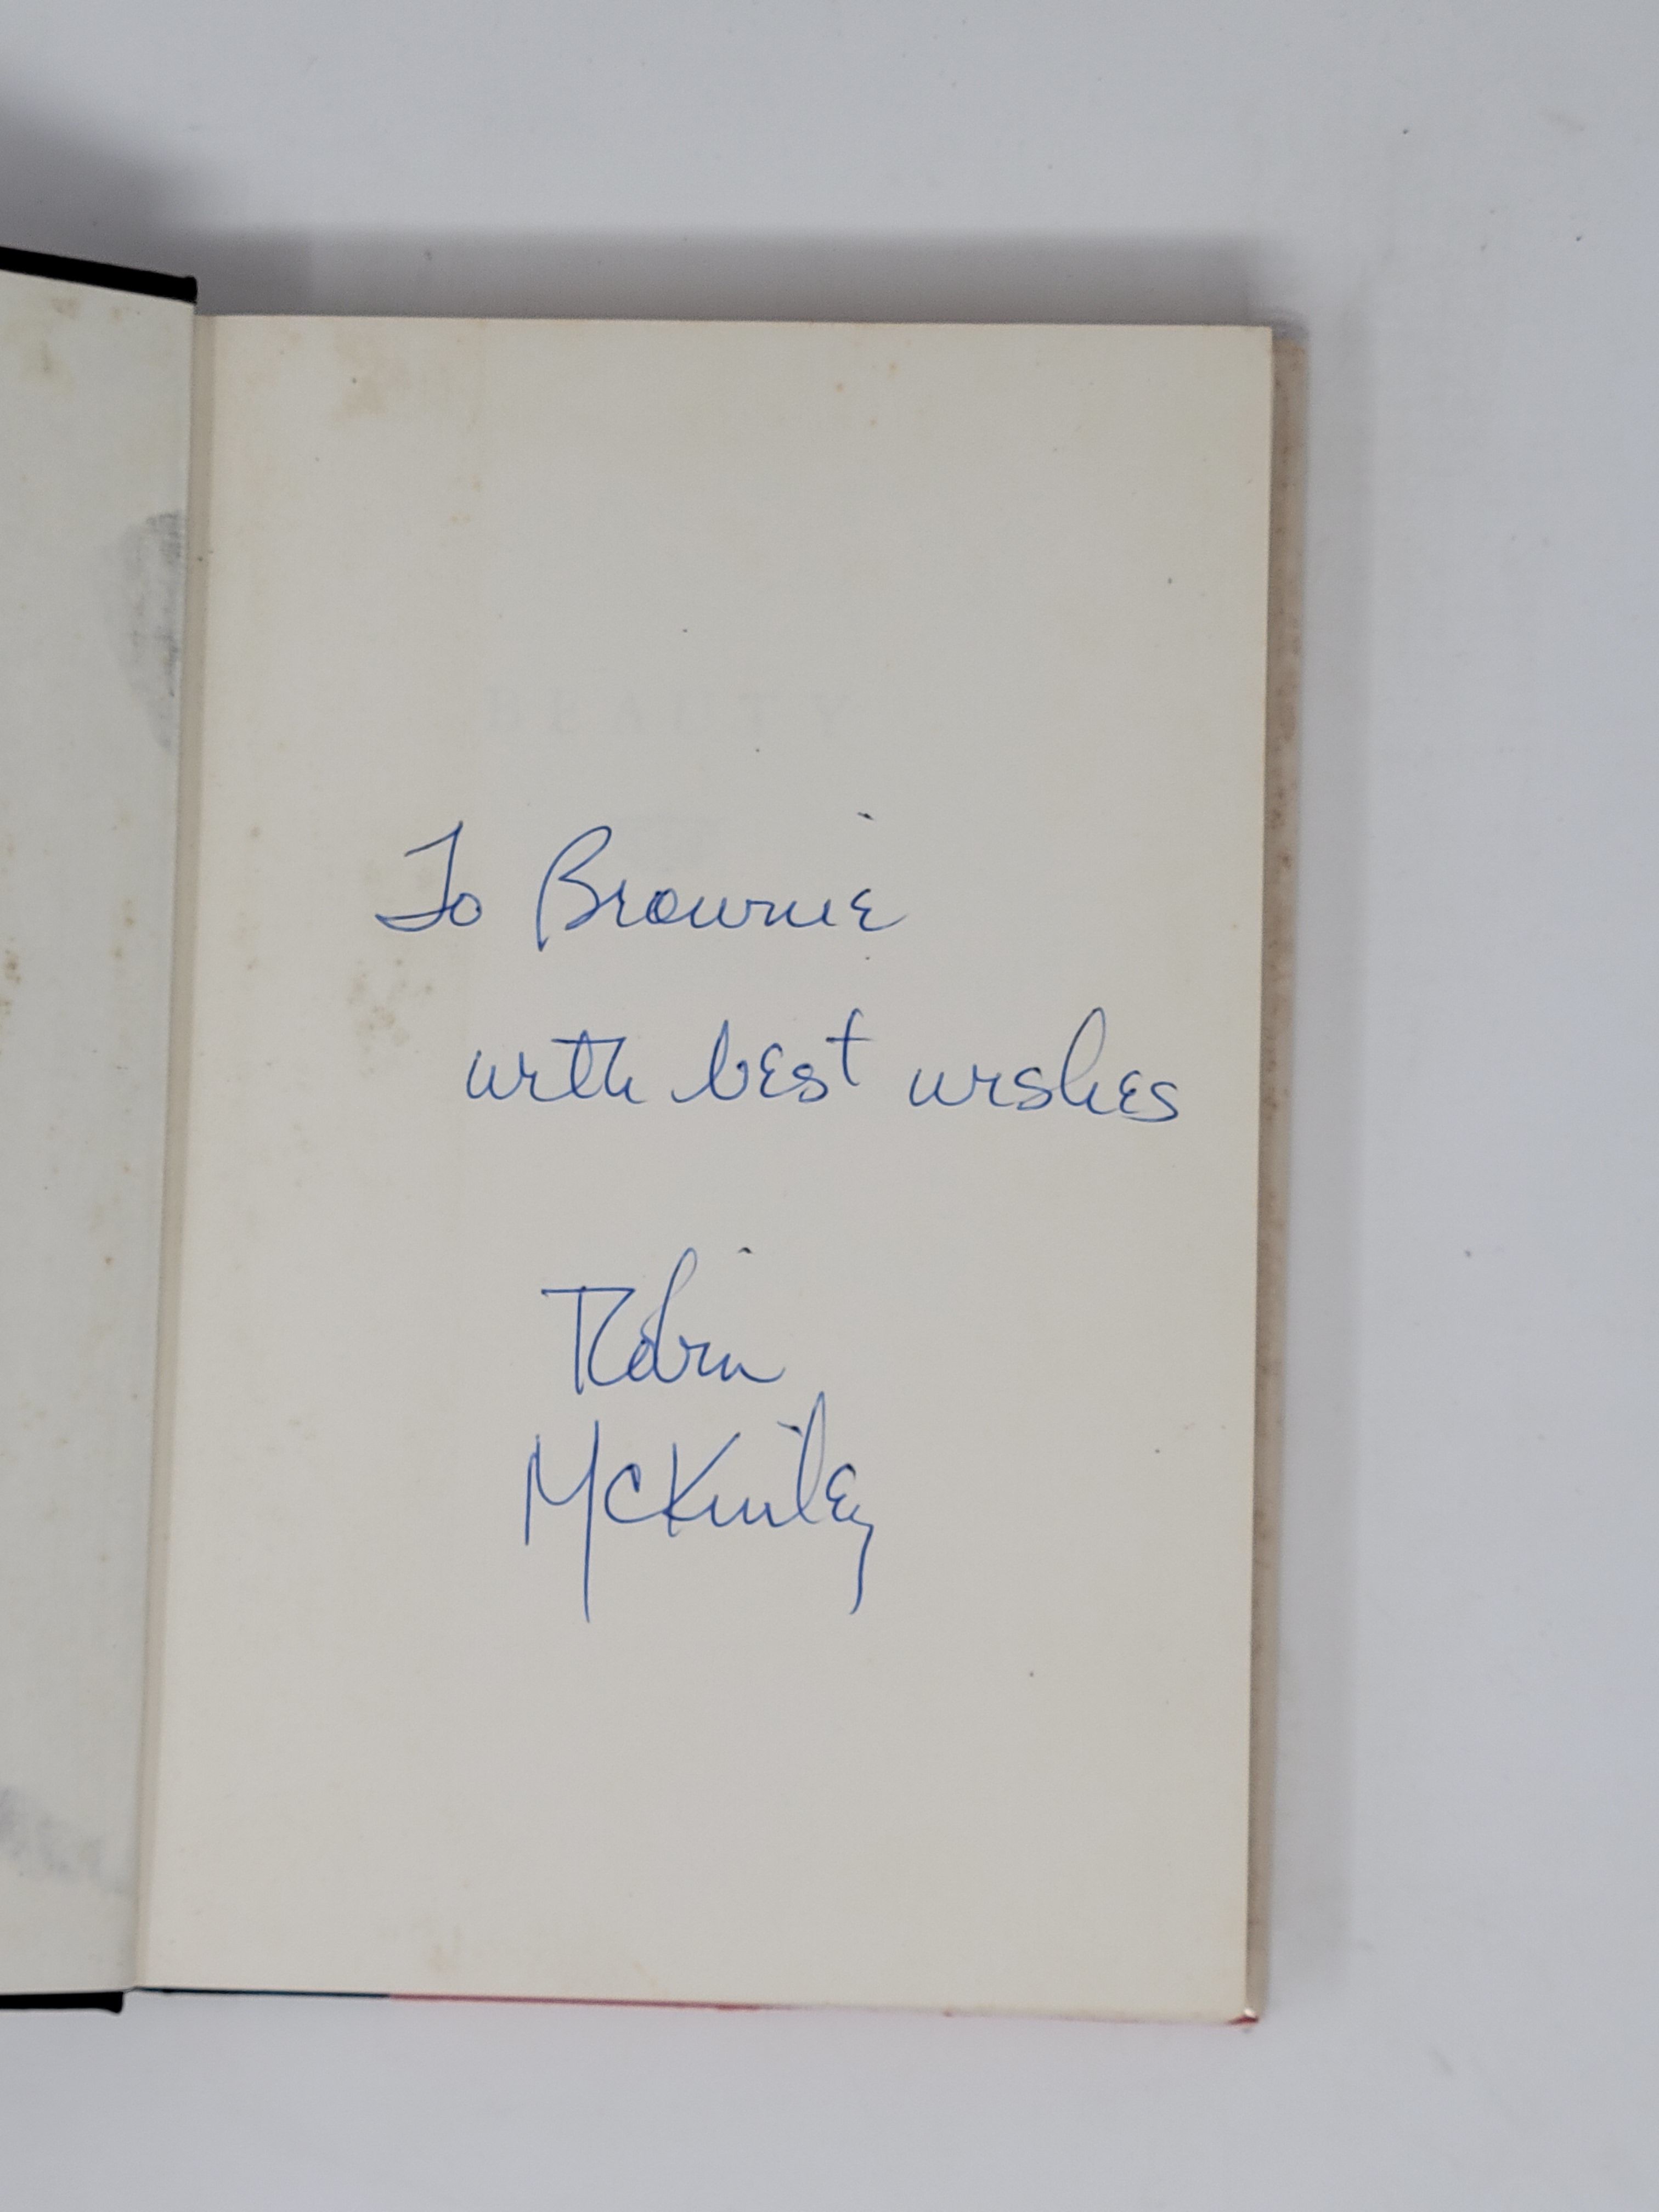 BEAUTY
To Brownie
with best wishes
Robin
McKinley